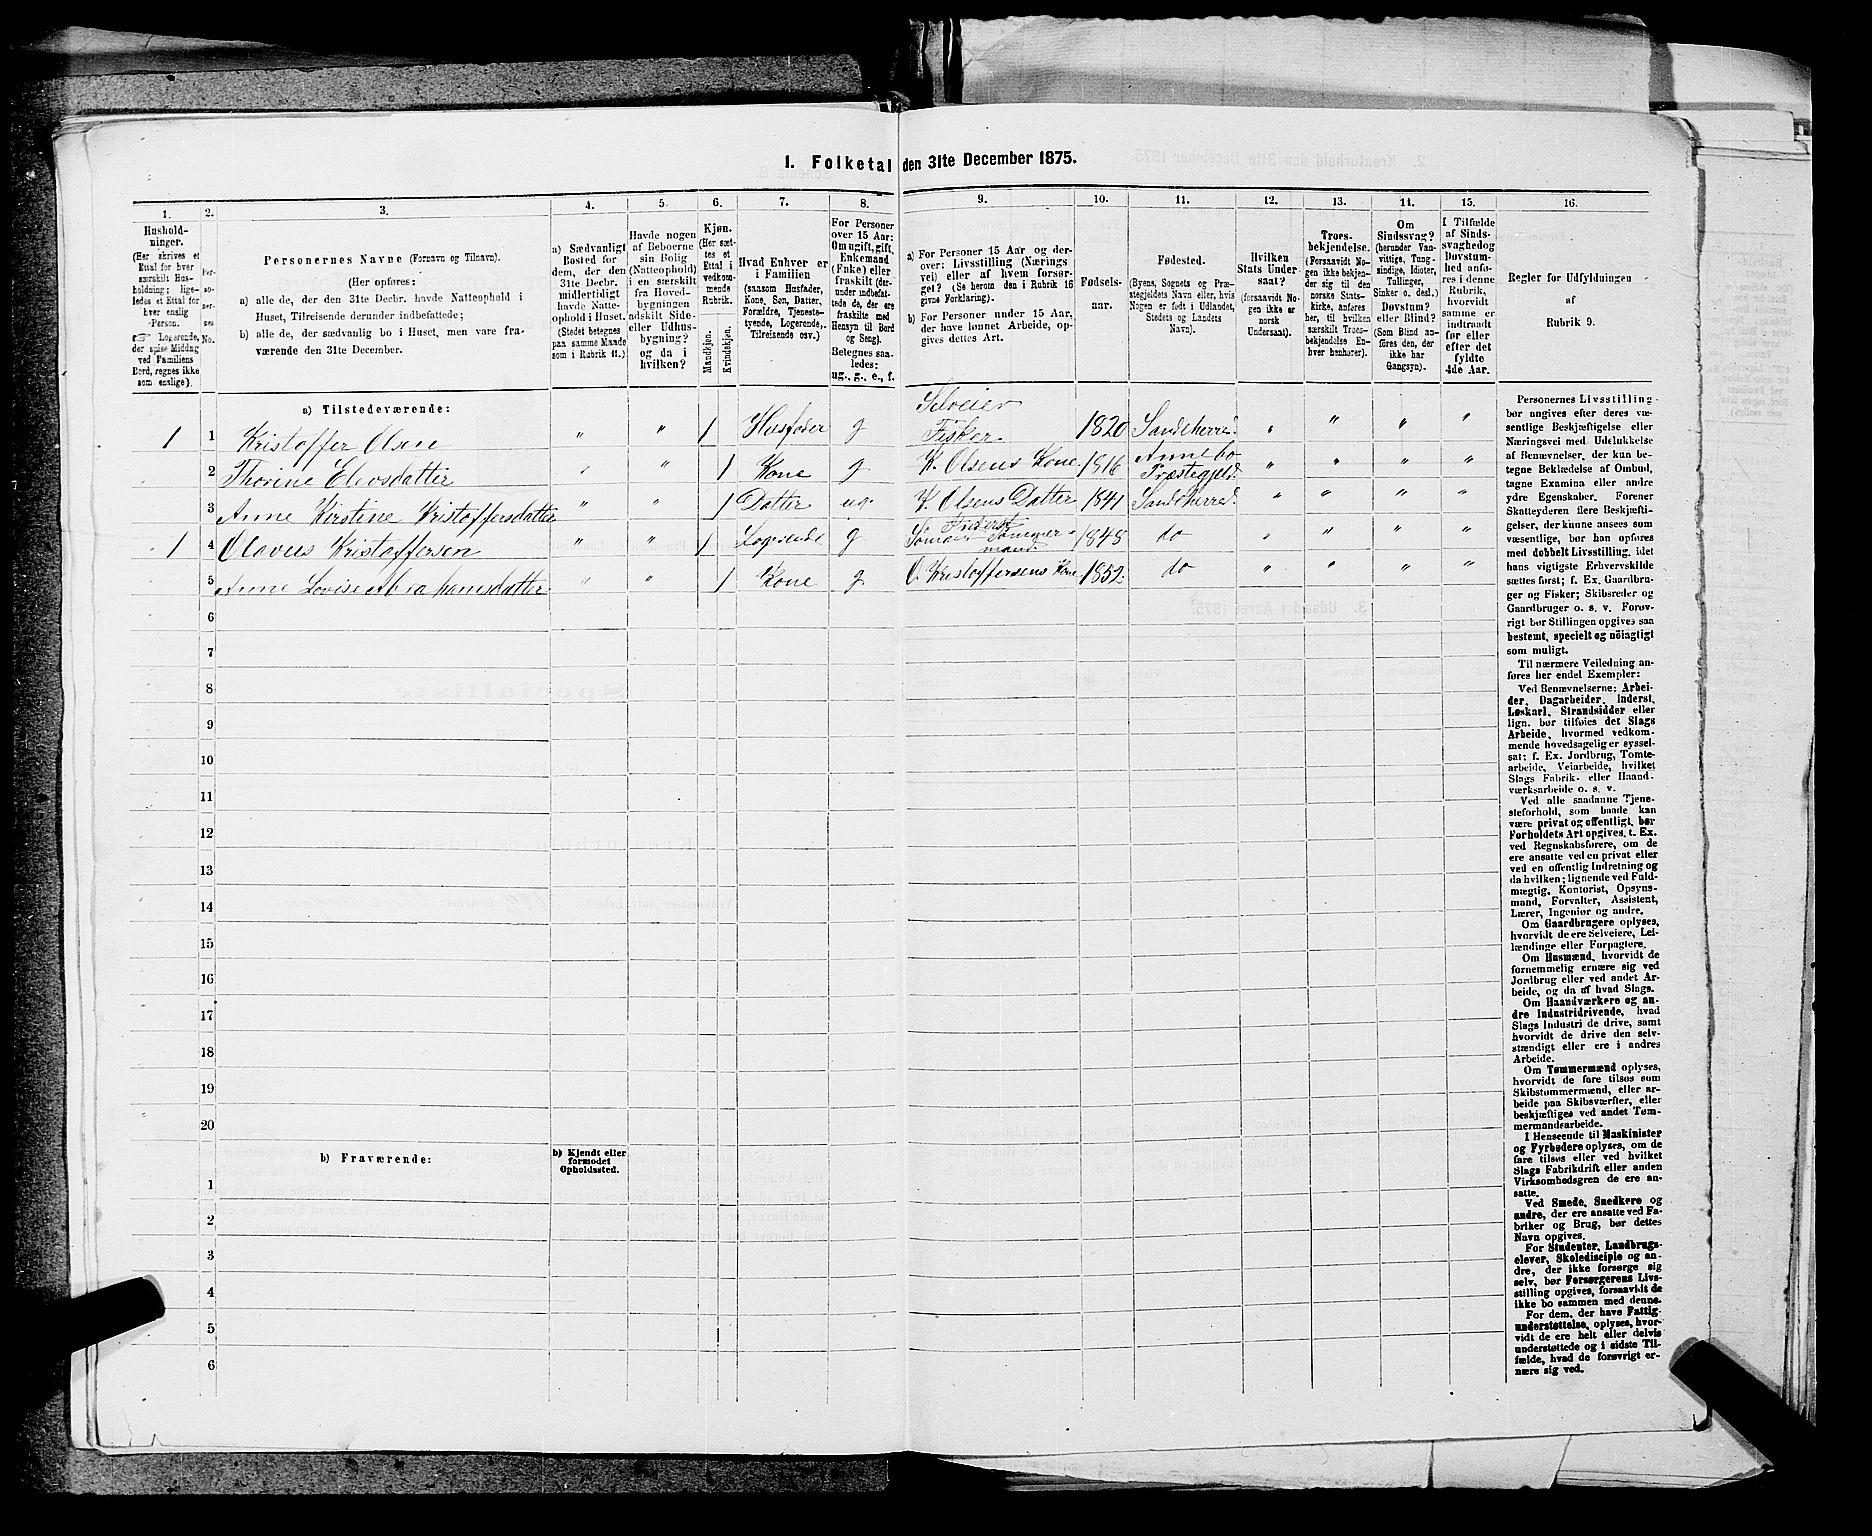 1. Folketal den 31te December 1875.
1.
Hushold-
ninger.
(Her skrives et
Ettal for hver
særskilt Hus-
holdning; lige-
ledes et Ettal for
hver enslig
Person.
Logerende,
der spise Middag
ved Familiens
Bord, regnes ikke
som enslige).
2.
Per-
so-
ner-
nes
No.
3.
Personernes Navne (Fornavn og Tilnavn).
(Her opføres:
a) alle de, der den 31te Decbr. havde Natteophold i
Huset, Tilreisende derunder indbefattede;
b) alle de, der sædvanlig bo i Huset, men vare fra-
værende den 31te December.
4.
a) Sædvanligt
Bosted for
dem, der den
31te Decbr.
midlertidigt
havde Natte-
ophold i Huset.
(Stedet betegnes
paa samme Maade
som i Rubrik 11.)
5.
Havde nogen
af Beboerne
sin Bolig
(Natteophold)
i en særskilt
fra Hoved-
bygningen
adskilt Side-
eller Udhus-
bygning?
og da i
hvilken?
6.
Kjøn.
(Her sæt-
tes et
Ettal i
vedkom-
mende
Rubrik.
Mandkjøn.
Kvindekjøn.
7.
Hvad Enhver er
i Familien
(saasom Husfader,
Kone, Søn, Datter,
Forældre, Tjeneste-
tyende, Logerende,
Tilreisende osv.)
8.
For Personer
over 15 Aar:
Om ugift, gift,
Enkemand
(Enke) eller
fraskilt (der-
under indbefat-
tede de, der ere
fraskilte med
Hensyn til Bord
og Seng).
Betegnes saa-
ledes:
ug., g., e., f.
9.
a) For Personer 15 Aar og der-
over: Livsstilling (Nærings
vei) eller af hvem forsør-
get? (Se herom den i Rubrik 16
givne Forklaring).
b) For Personer under 15 Aar,
der have lønnet Arbeide, op-
gives dettes Art.
10.
Fødsels-
aar.
11.
Fødested.
(Byens, Sognets og Præ-
stegjeldets Navn eller, hvis
Nogen er født i Udlandet,
Stedets og Landets
Navn).
12.
Hvilken
Stats Under-
saat?
(forsaavidt No-
gen ikke er
norsk
Undersaat).
13.
Troes-
bekjendelse.
(Forsaavidt No-
gen ikke bekjen-
der sig til den
norske Stats-
kirke, anføres
her, til hvilken
særskilt Troes-
bekjendelse En-
hver henhører).
14.
Om
Sindssvag?
(herunder Van-
vittige, Tung-
sindige, Idioter,
Tullinger,
Sinker o. desl.)
Døvstum?
eller Blind?
(Som Blind an-
føres den, der
ikke har
Gangsyn).
15.
I Tilfælde
af Sinds-
svaghed og
Døvstum-
hed anfø-
res i denne
Rubrik,
hvorvidt
samme er
indtraadt
før eller
efter det
fyldte
4de Aar.
16.
Regler for Udfyldningen
af
Rubrik 9.
a) Tilstedeværende:
1 1 Kristoffer Olsen " " 1 Husfader g Selveier Fisker 1820 Sandeherred " " " "
2 Thorine Elevsdatter " " 1 Kone g K. Olsens Kone 1816 Annebo Præstegjeld " " " "
3 Anne Kirstine Kristoffersdatter " " 1 Datter ug K. Olsens Datter 1841 Sandeherred " " " "
1 4 Olavus Kristoffersen " " 1 Logerende g Inderst Tømmermand 1848 do " " " "
5 Anne Lovise Abrahamsdatter " " 1 Kone g O. Kristoffersens Kone 1852 do " " " "
6
7
8
9
10
11
12
13
14
15
16
17
18
19
20
b) Fraværende:
b) Kjendt eller
formodet
Opholdssted.
1
2
3
4
5
6
Personernes Livsstilling
bør angives efter deres væ-
sentlige Beskjæftigelse eller
Næringsvei med Udelukkelse
af Benævnelser, der kun be-
tegne Beklædelse af Ombud,
tagne Examina eller andre
ydre Egenskaber. Forener
Skatteyderen flere Beskjæfti-
gelser, der kunne ansees som
væsentlige, bør han opføres
med dobbelt Livsstilling, idet
hans vigtigste Erhvervskilde
sættes først; f. Ex. Gaardbru-
ger og Fisker; Skibsreder og
Gaardbruger o. s. v. Forøv-
rigt bør Stillingen opgives saa
bestemt, specielt og nøiagtigt
som muligt.
Til nærmere Veiledning an-
føres her endel Exempler:
Ved Benævnelserne: Arbei-
der, Dagarbeider, Inderst,
Løskarl, Strandsidder eller
lign. bør tilføies det Slags
Arbeide, hvormed vedkom-
mende hovedsagelig er syssel-
sat; f. Ex. Jordbrug, Tomte-
arbeide, Veiarbeide, hvilket
Slags Fabrik- eller Haand-
værksarbeide o. s. v.
Ved alle saadanne Tjene-
steforhold, som baade kan
være privat og offentligt, bør
Forholdets Art opgives, t. Ex.
ved Regnskabsførere, om de
ere ansatte ved en privat eller
ved en offentlig Indretning og
da hvilken; lignende ved Fuld-
mægtig, Kontorist, Opsyns-
mand, Forvalter, Assistent,
Lærer, Ingeniør og andre.
Om Gaardbrugere oplyses,
hvorvidt de ere Selveiere, Lei-
lændinge eller Forpagtere.
Om Husmænd, hvorvidt de
fornemmelig ernære sig ved
Jordbrug eller ved andet Ar-
beide, og da af hvad Slags.
Om Haandværkere og an-
dre Industridrivende, hvad
Slags Industri de drive, samt
hvorvidt de drive den selv-
stændigt eller ere i andres
Arbeide.
Om Tømmermænd oplyses,
hvorvidt de fare tilsøs som
Skibstømmermænd, eller ar-
beide paa Skibsværfter, eller
beskjæftiges ved andet Tøm-
mermandsarbeide.
I Henseende til Maskinister
og Fyrbødere oplyses, om de
fare tilsøs eller ved hvilket
Slags Fabrikdrift eller anden
Virksomhedsgren de ere an-
satte.
Ved Smede, Snedkere og
andre, der ere ansatte ved Fa-
briker og Brug, bør dettes
Navn opgives.
For Studenter, Landbrugs-
elever, Skoledisciple og an-
dre, der ikke forsørge sig
selv, bør Forsørgerens Livs-
stilling opgives, forsaavidt de
ikke bo sammen med denne.
For dem, der have Fattig-
understøttelse, oplyses, hvor-
vidt de ere helt eller delvis
understøttede og i sidste Til-
fælde, hvad de forøvrigt er-
nære sig ved.